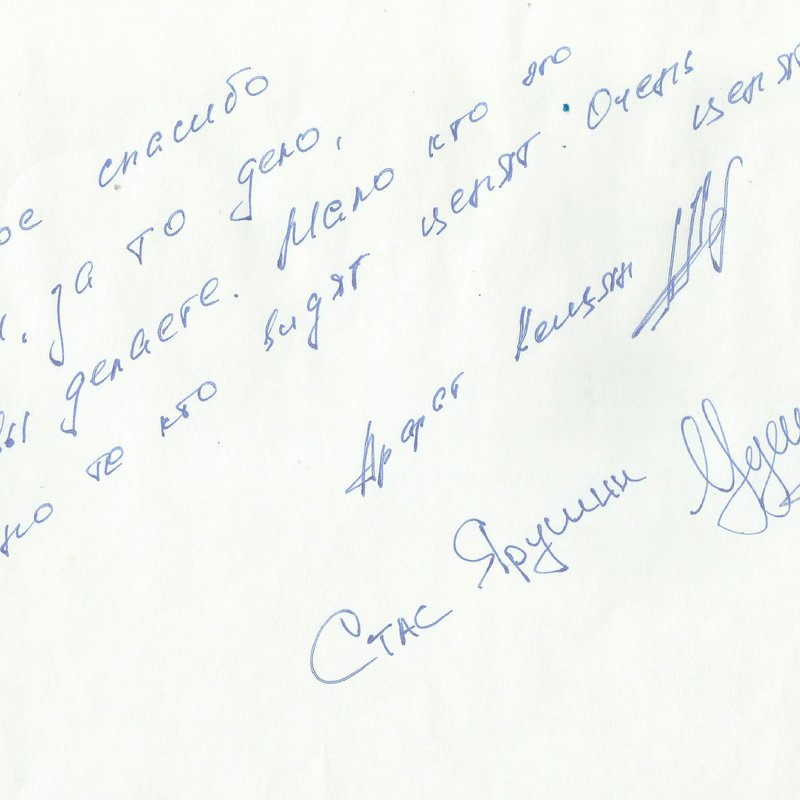 ое спасибо
за то дело,
вы делаете. Мало кто это
но те кто видят ценят. Очень
ценят
Арарат Кещян
Стас Ярушин